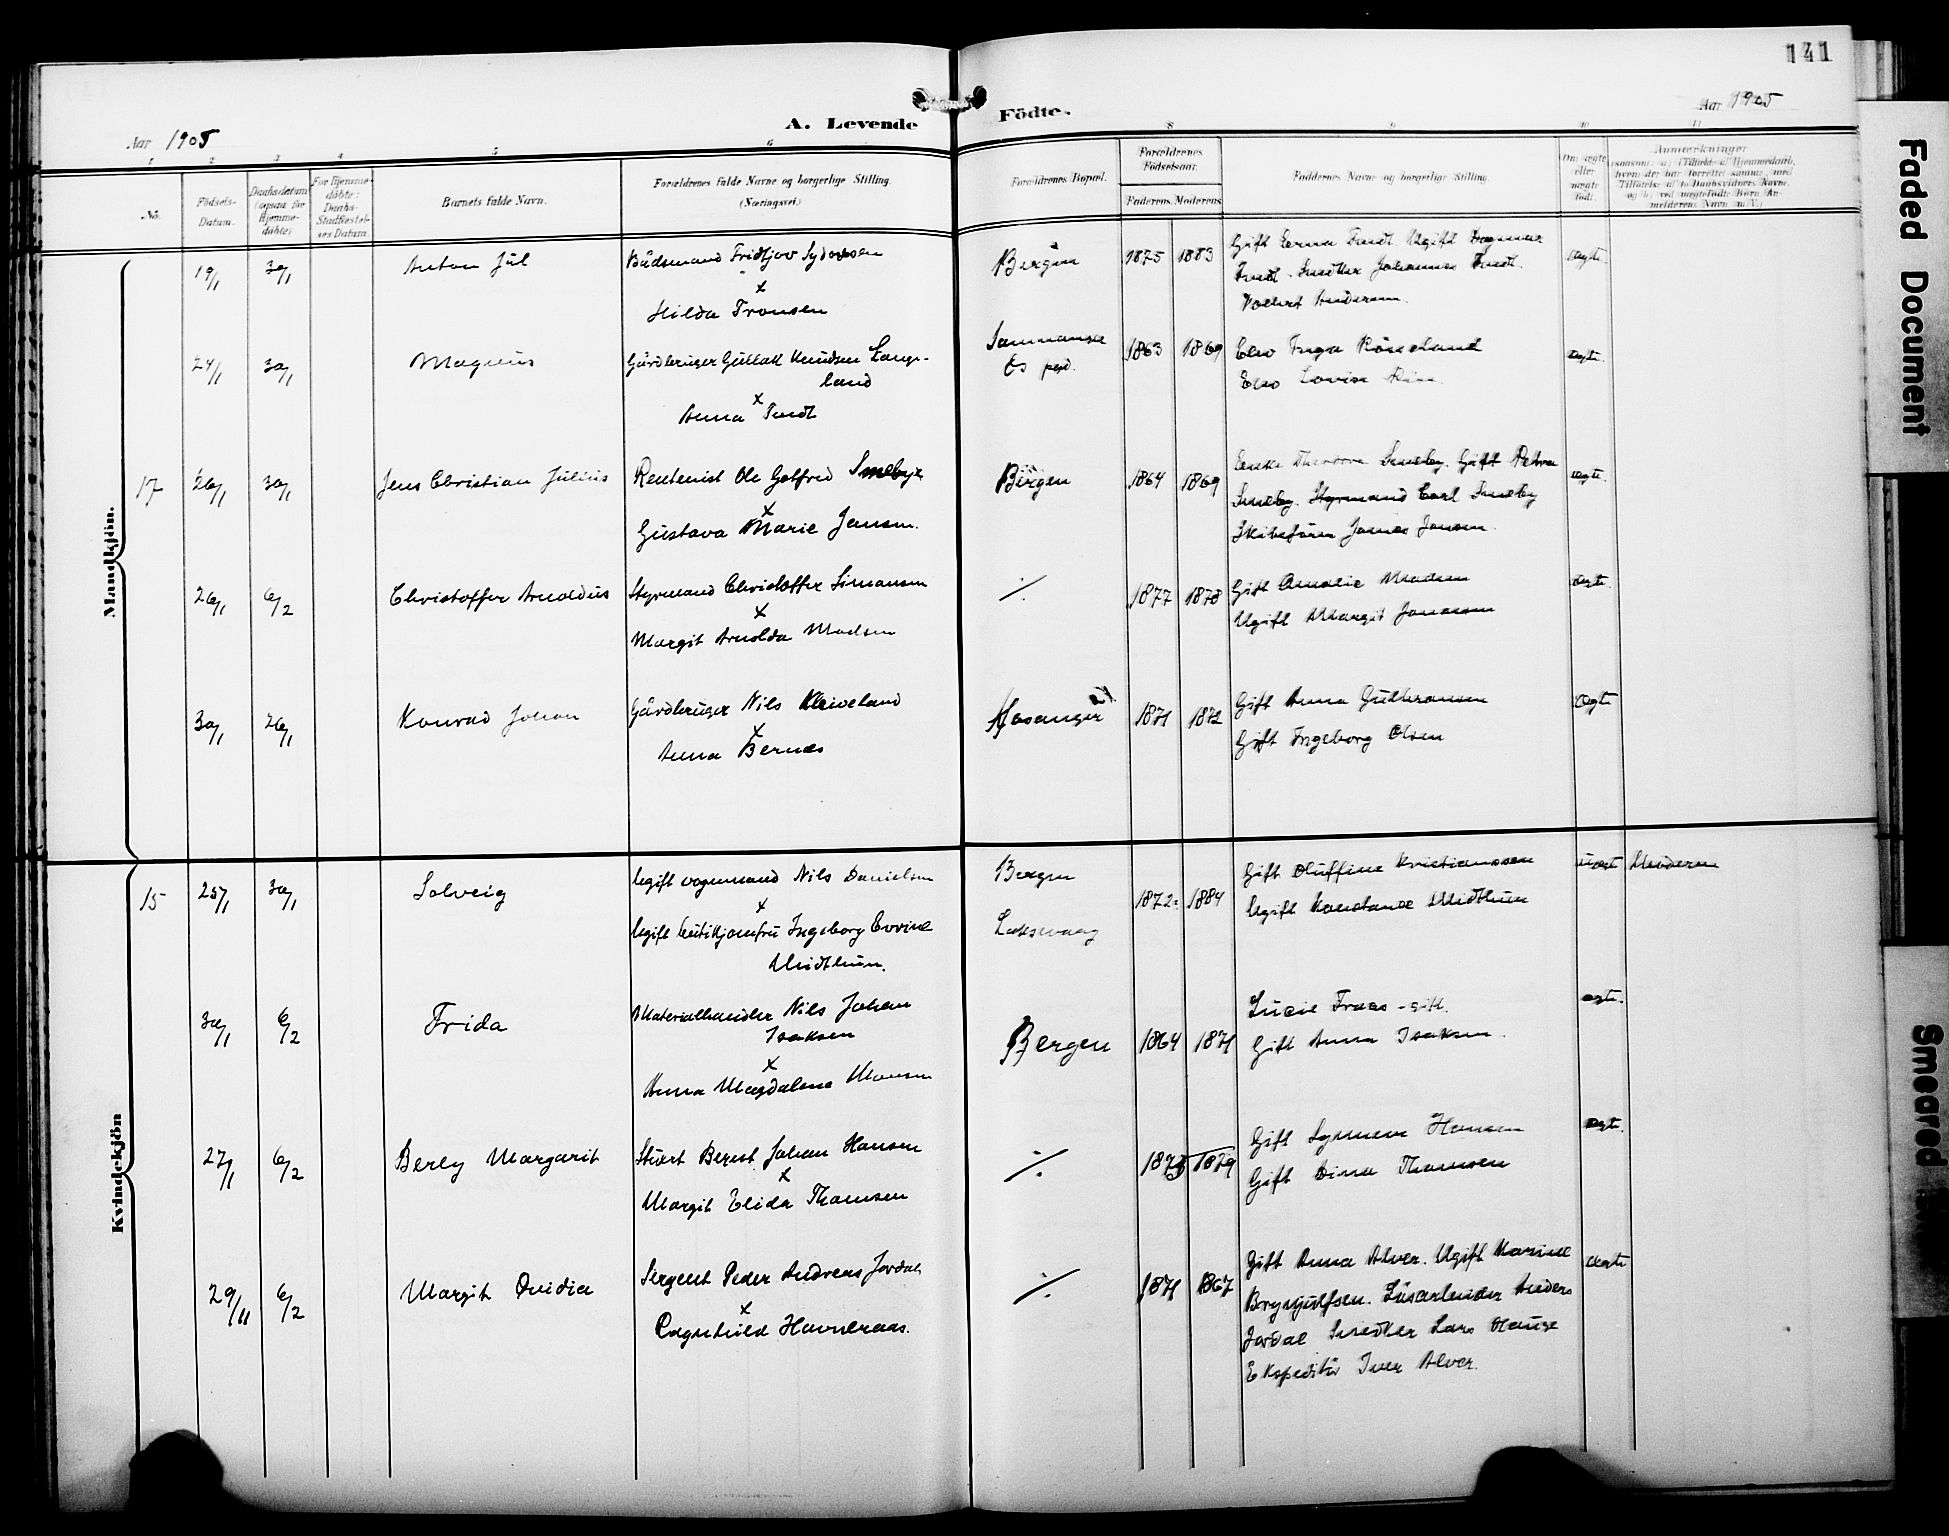 141
Aar 1905
A. Levende
Födte.
Aar 1905
1 2 3 4 5 6 8 9 10 11
No.
Födsels-
Datum.
Daabsdatum
(ogsaa for
Hjemme-
døbte)
For Hjemme-
döbte:
Daabs-
Stadfæstel-
ses Datum
Barnets fulde Navn.
Forældrenes fulde Navne og borgerlige Stilling.
(Næringsvei)
Forældrenes Bopæl.
Forældrenes
Födselsaar.
Faderens. Moderens
Faddernes Navne og borgerlige Stilling.
Om ægte
eller
uægte
født.
Anmærkninger
Mandkjön.
19/1 30/1 Anton Jul
Bådsmand Fridtjov Syversen
x
Hilda Tronsen
Bergen 1875 1883
Gift Erna Tvedt. Ugift Dagmar
Tvedt. Snedker Johannes Tvedt.
Volkert Andersen.
ægte
24/1 30/1 Magnus
Gårdbruger Gullak Knudsen Lange-
land
x
Anna Tvedt
Sammanger
Os pgd.
1863 1869
Elev Inga Röiseland
Elev Lovise
ægte.
17 26/1 30/1 Jens Christian Julius
Rentenist Ole Gotfred Smeby
x
Gustava Marie Jansen.
Bergen 1864 1869
Enke Theodora Smeby. Gift Petra
Smeby. Styrmand Carl Smeby
Skibsfører James Jansen.
ægte.
26/1 6/2 Christoffer Arnoldus
Styrmand Christoffer Simonsen
x
Margit Arnolda Madsen
./. 1877 1878
Gift Amalie Madsen
Ugift Margit Jonassen
ægte.
30/1 26/1 Konrad Johan
Gårdbruger Nils Kleiveland
x
Anna Bernæs
Hosanger 1871 1872
Gift Anna Gulbransen
Gift Ingeborg Olsen
ægte
Kvindekjön
15 25/1 30/1 Solveig
Ugift vognmand Nils Danielsen
x
Ugift butikjomfru Ingeborg Eovine
Midthun.
Bergen
Laksevaag
1872. 1884
Gift Oluffine Kristianssen
Ugift Konstanse Midthun
uægt Moderen
30/1 6/2 Frida
Materialhandler Nils Johan
Isaksen
x
Anna Magdalena Monsen
Bergen 1864 1871
Lucie Fraas - gift.
Gift Anna Isaksen.
ægte.
27/1 6/2 Berly Margarit
Stuert Bernt Johan Hansen
x
Margit Elida Thomsen
./. 1875 1879
Gift Hansen
Gift Dina Thomsen
ægte.
29/11 6/2 Margit Ovidia
Sergent Peder Andreas Jordal
x
Ragnhild Havneraas.
./. 1871 1867
Gift Anna Alver. Ugift Karine
Brynjulfsen. Lusarbeider Anders
Jordal Snedker Lars Hauge
Ekspeditör Iver Alver.
ægte
Faded Document
Smeared